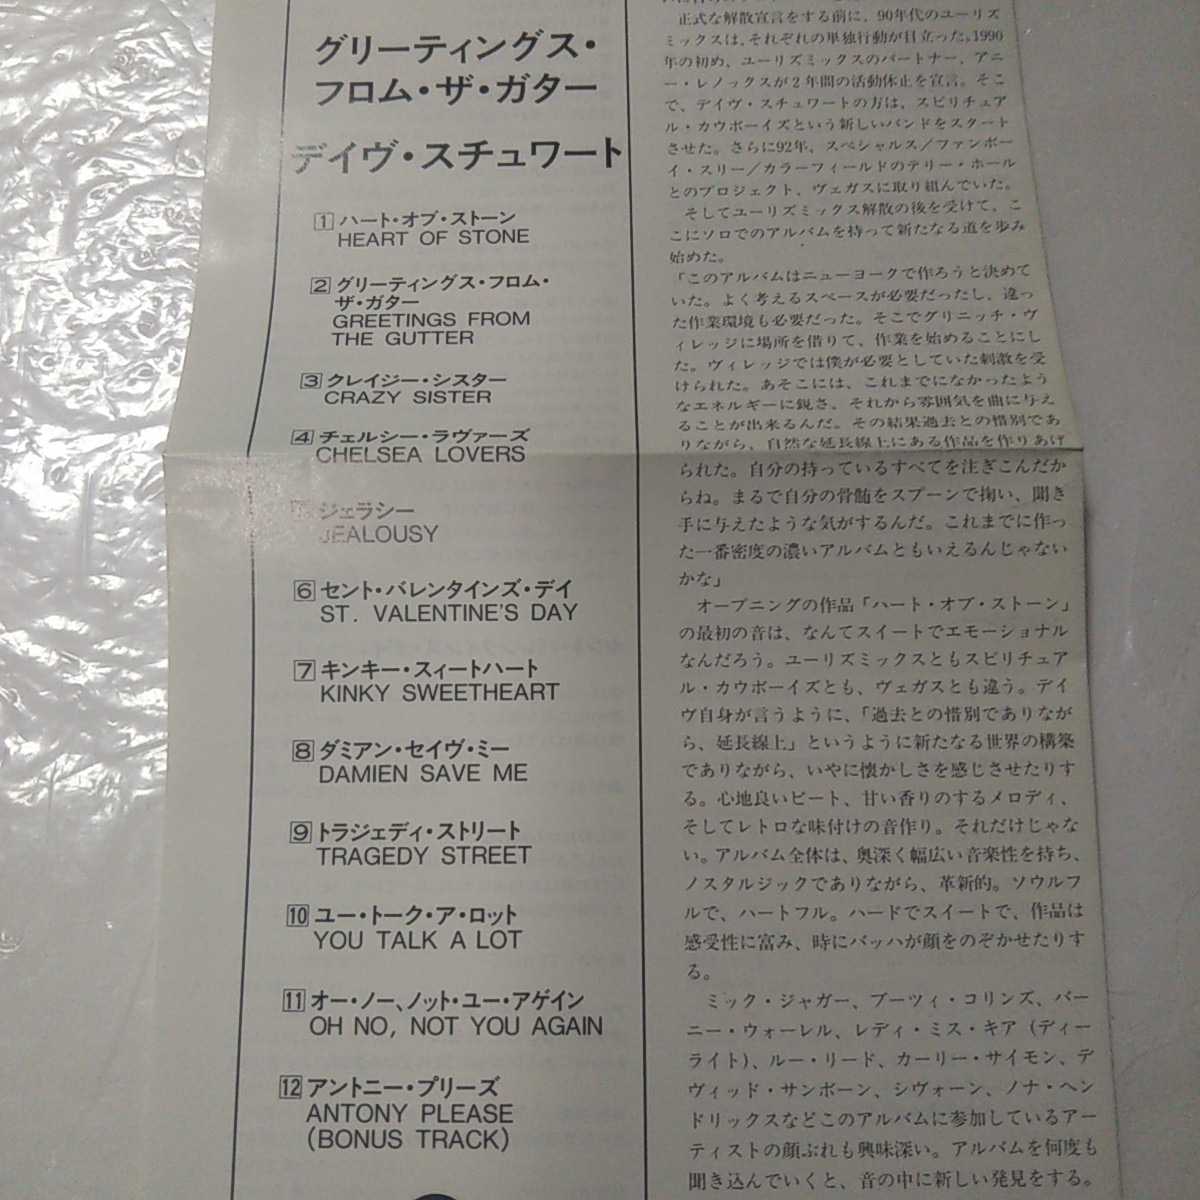 グリーティングス・
フロム・ザ・ガター
デイヴ・スチュワート
1 ハート・オブ・ストーン
HEART OF STONE
2 グリーティングス・フロム・
ザ・ガター
GREETINGS FROM
THE GUTTER
3 クレイジー・シスター
CRAZY SISTER
4 チェルシー・ラヴァーズ
CHELSEA LOVERS
ジェラシー
JEALOUSY
6 セント・バレンタインズ・デイ
ST. VALENTINE'S DAY
7 キンキー・スィートハート
KINKY SWEETHEART
8 ダミアン・セイヴ・ミー
DAMIEN SAVE ME
9 トラジェディ・ストリート
TRAGEDY STREET
10 ユー・トーク・ア・ロット
YOU TALK A LOT
11 オー・ノー、ノット・ユー・アゲイン
OH NO, NOT YOU AGAIN
12 アントニー・プリーズ
ANTONY PLEASE
(BONUS TRACK)
正式な解散宣言をする前に、90年代のユーリズ
ミックスは、それぞれの単独行動が目立った。1990
年の初め、ユーリズミックスのパートナー、アニ
ー・レノックスが2年間の活動休止を宣言。そこ
で、デイヴ・スチュワートの方は、スピリチュア
ル・カウボーイズという新しいバンドをスタート
させた。さらに92年、スペシャルス/ファンボー
イ・スリー/カラーフィールドのテリー・ホール
とのプロジェクト、ヴェガスに取り組んでいた。
そしてユーリズミックス解散の後を受けて、こ
こにソロでのアルバムを持って新たなる道を歩み
始めた。
「このアルバムはニューヨークで作ろうと決めて
いた。よく考えるスペースが必要だったし、違っ
た作業環境も必要だった。そこでグリニッチ・ヴ
ィレッジに場所を借りて、作業を始めることにし
た。ヴィレッジでは僕が必要としていた刺激を受
けられた。あそこには、これまでになかったよう
なエネルギーに鋭さ、それから雰囲気を曲に与え
ることが出来るんだ。その結果過去との惜別であ
りながら、自然な延長線上にある作品を作りあげ
られた。自分の持っているすべてを注ぎこんだか
らね。まるで自分の骨髄をスプーンで掬い、聞き
手に与えたような気がするんだ。これまでに作っ
た一番密度の濃いアルバムともいえるんじゃない
かな」
オープニングの作品「ハート・オブ・ストーン」
の最初の音は、なんてスイートでエモーショナル
なんだろう。ユーリズミックスともスピリチュア
ル・カウボーイズとも、ヴェガスとも違う。デイ
ヴ自身が言うように、「過去との惜別でありなが
ら、延長線上」というように新たなる世界の構築
でありながら、いやに懐かしさを感じさせたりす
る。心地良いビート、甘い香りのするメロディ、
そしてレトロな味付けの音作り。それだけじゃな
い。アルバム全体は、奥深く幅広い音楽性を持ち、
ノスタルジックでありながら、革新的。ソウルフ
ルで、ハートフル。ハードでスイートで、作品は
感受性に富み、時にバッハが顔をのぞかせたりす
る。
ミック・ジャガー、ブーツィ・コリンズ、バー
ニー・ウォーレル、レディ・ミス・キア(ディー
ライト)、ルー・リード、カーリー・サイモン、デ
ヴィッド・サンボーン、シヴォーン、ノナ・ヘン
ドリックスなどこのアルバムに参加しているアー
ティストの顔ぶれも興味深い。アルバムを何度も
聞き込んでいくと、音の中に新しい発見をする。